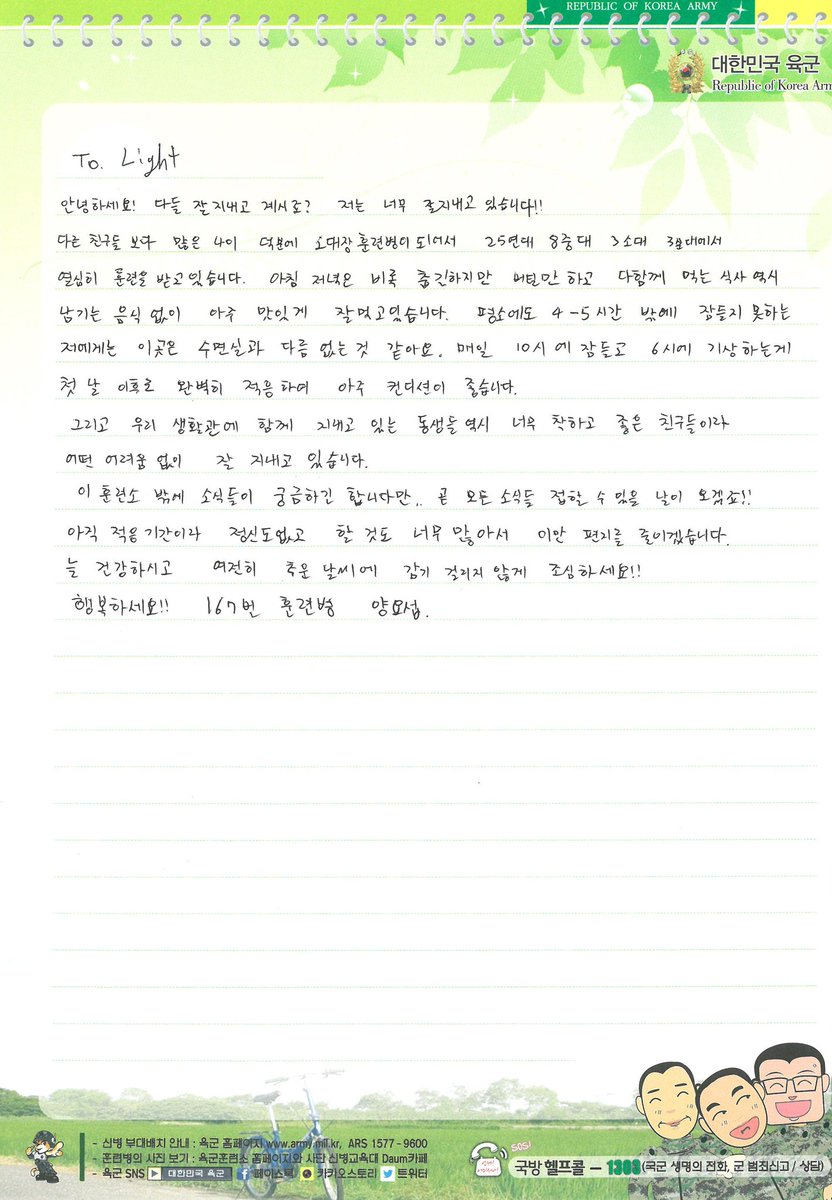 REPUBLIC OF KOREA ARMY
대한민국 육군
Republic of Korea Arm
To. Light
안녕하세요! 다들 잘지내고 계시죠? 저는 너무 잘지내고 있습니다!!
다른 친구들 보다 많은 나이 덕분에 소대장 훈련병이 되어서 25연대 8중대 3소대 3분대에서
열심히 훈련을 받고있습니다. 아침 저녁은 비록 춥긴하지만 버틸만 하고 다함께 먹는 식사 역시
남기는 음식 없이 아주 맛있게 잘먹고있습니다. 평소에도 4-5시간 밖에 잠들지 못하는
저에게는 이곳은 수면실과 다름 없는것 같아요. 매일 10시에 잠들고 6시에 기상하는게
첫 날 이후로 완벽히 적응하여 아주 컨디션이 좋습니다.
그리고 우리 생활관에 함께 지내고 있는 동생들 역시 너무 착하고 좋은 친구들이라
어떤 어려움 없이 잘 지내고 있습니다.
이 훈련소 밖에 소식들이 궁금하긴 합니다만.. 곧 모든 소식들 접할 수 있을 날이 오겠죠!!
아직 적응기간이라 정신도없고 할 것도 너무 많아서 이만 편지를 줄이겠습니다.
늘 건강하시고 여전히 추운 날씨에 감기 걸리지 않게 조심하세요!!
행복하세요!! 167번 훈련병 양요섭.
- 신병 부대배치 안내 : 육군 홈페이지 www.army.mil.kr, ARS 1577-9600
- 훈련병의 사진 보기 : 육군훈련소 홈페이지와 사단 신병교육대 Daum카페
- 육군 SNS ▶ 대한민국 육군 f 페이스북 카카오스토리 트위터
SOS!
국방 헬프콜 - 1303 (국군 생명의 전화, 군 범죄신고 / 상담)